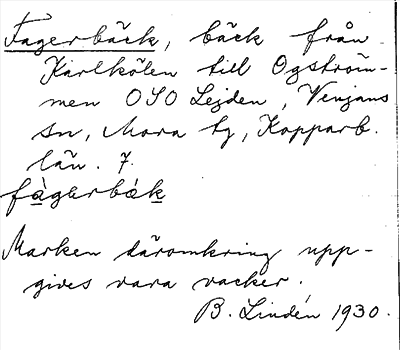 Fagerbäck, bäck från
Karlkölen till Ogström-
men OSO Lejden, Venjans
sn, Mora tg, Kopparb.
län. 7.
fàgərbäk
Marken däromkring upp-
gives vara vacker.
B. Lindén 1930.